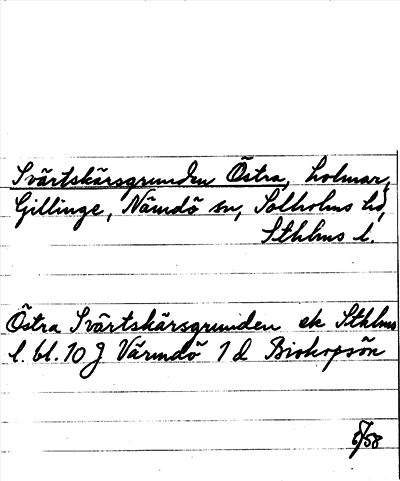 Svärtskärsgrunden Östra, holmar,
Gillinge, Nämdö sn, Solholms hd,
Sthlms l.
Östra Svärtskärsgrunden ek Sthlms
l. bl. 10 J Värmdö 1 d Biskopsön
/58